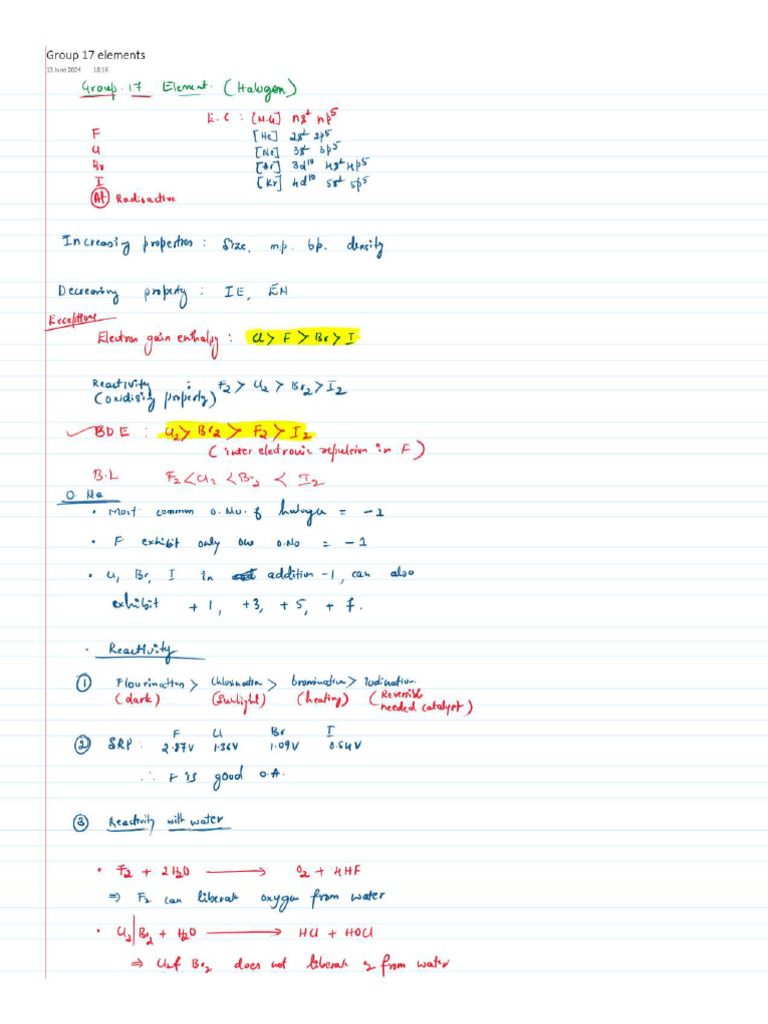 Group 17 elements
13 June 2024 18:16
Group. 17 Element. (Halogen)
E.C : [N.G] ns² np⁵
F [He] 2s² 2p⁵
Cl [Ne] 3s² 3p⁵
Br [Ar] 3d¹⁰ 4s² 4p⁵
I [Kr] 4d¹⁰ 5s² 5p⁵
At Radioactive
Increasing properties : Size, mp. bp. density
Decreasing property : IE, EN
Exceptions
Electron gain enthalpy : Cl > F > Br > I
Reactivity : F₂ > Cl₂ > Br₂ > I₂
(oxidising property)
BDE : Cl₂ > Br₂ > F₂ > I₂
(inter electronic repulsion in F)
B.L F₂ < Cl₂ < Br₂ < I₂
O. No
• Most common O.No. of halogen = -1
• F exhibit only one O.No = -1
• Cl, Br, I in addition -1, can also
exhibit +1, +3, +5, +7.
• Reactivity
① Flourination > Chlorination > bromination > Iodination
(dark) (Sunlight) (heating) (Reversible
needed catalyst)
② SRP : F Cl Br I
2.87V 1.36V 1.09V 0.54V
∴ F is good O.A.
③ Reactivity with water
• F₂ + 2H₂O ⟶ O₂ + 4HF
⇒ F₂ can liberate oxygen from water
• Cl₂|Br₂ + H₂O ⟶ HCl + HOCl
⇒ Cl₂ & Br₂ does not liberate from water